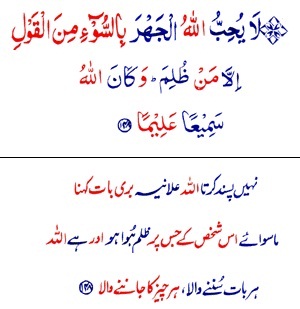 لَا يُحِبُّ اللهُ الْجَهْرَ بِالسُّوْٓءِ مِنَ الْقَوْلِ
اِلَّا مَنْ ظُلِمَ ؕ وَ كَانَ اللهُ
سَمِيْعًا عَلِيْمًا ﴿۱۴۸﴾
نہیں پسند کرتا اللہ علانیہ بری بات کہنا
ماسوائے اس شخص کے جس پر ظلم ہُوا ہو اور ہے اللہ
ہر بات سُننے والا، ہر چیز کا جاننے والا ﴿۱۴۸﴾